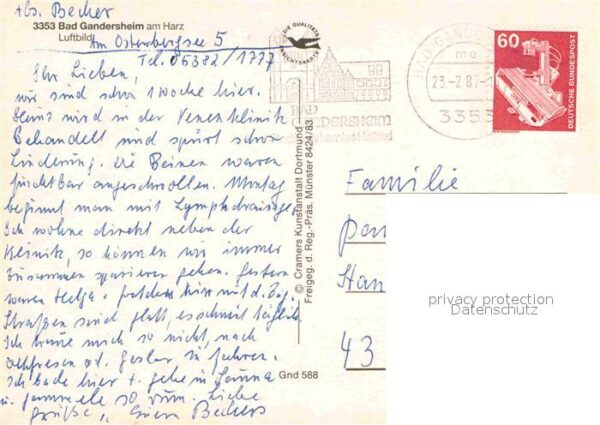 Abs. Becher
3353 Bad Gandersheim am Harz
Luftbild
Am Osterbergsee 5
Tel. 05382/1777
Ihr Lieben,
wir sind schon 1 Woche hier.
Heinz wird in der Venenklinik
Behandelt und spürt schon
Linderung. Die Beinen waren
furchtbar angeschwollen. Montag
beginnt man mit Lymphdrainage.
Ich wohne direkt neben der
Klinik, so können wir immer
zusammen spazieren gehen. Gestern
waren Helga + hier mit d. Zug.
Straßen sind glatt, es schneit täglich
Ich traue mich so nicht, nach
od. Goslar zu fahren.
Ich bade hier + gehe in Sauna
u. gammele so rum. Liebe
Grüße, Eure Bechers
DIE QUALITÄTS
ANSICHTSKARTE
BAD
GANDERSHEIM
BAD GANDERSHEIM
me
23-2.87-
3353
60
DEUTSCHE BUNDESPOST
© Cramers Kunstanstalt Dortmund
Freigeg. d. Reg.-Präs. Münster 8424/83
Gnd 588
Familie
Han
43
privacy protection
Datenschutz